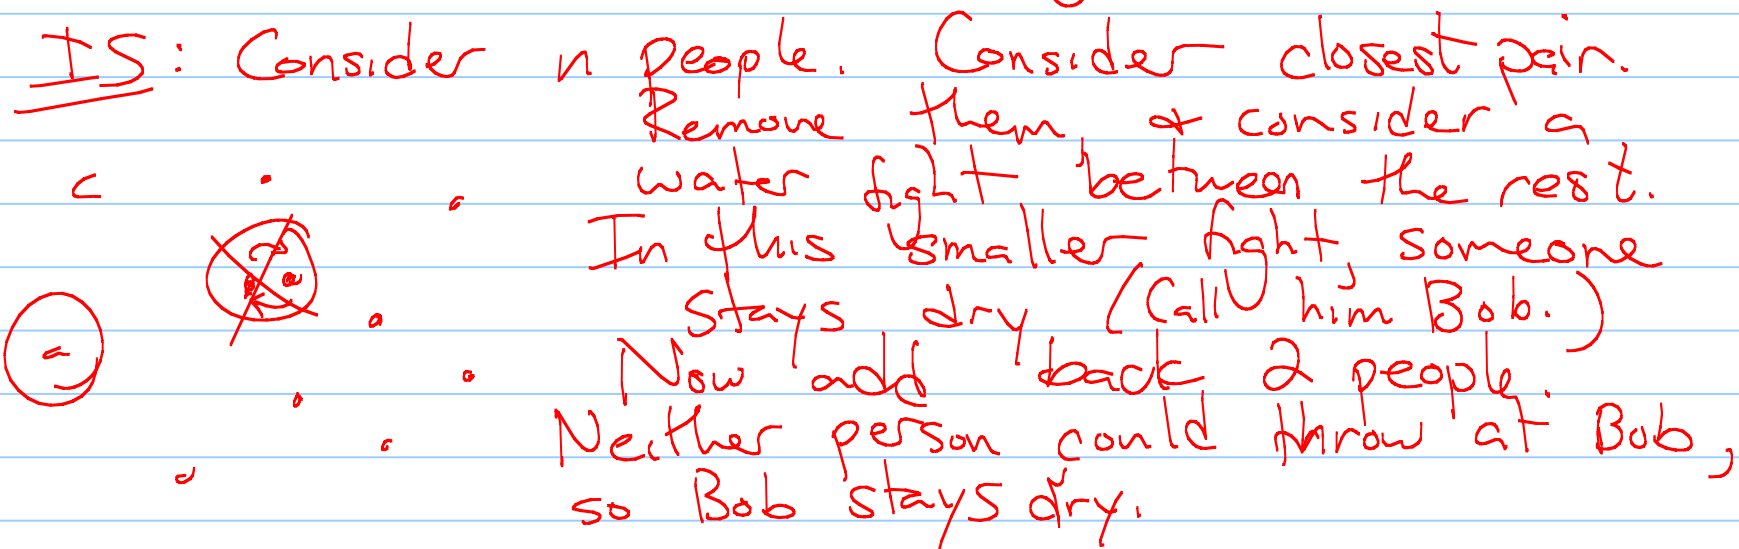 IS: Consider n people. Consider closest pair.
Remove them & consider a
water fight between the rest.
In this smaller fight, someone
stays dry (Call him Bob.)
Now add back 2 people.
Neither person could throw at Bob,
so Bob stays dry.